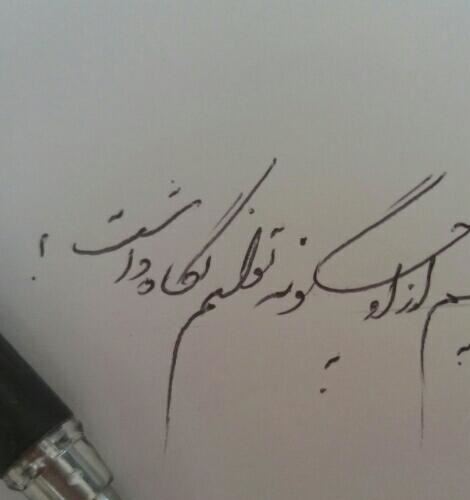 چشم از او چگونه توانیم نگاه داشت!